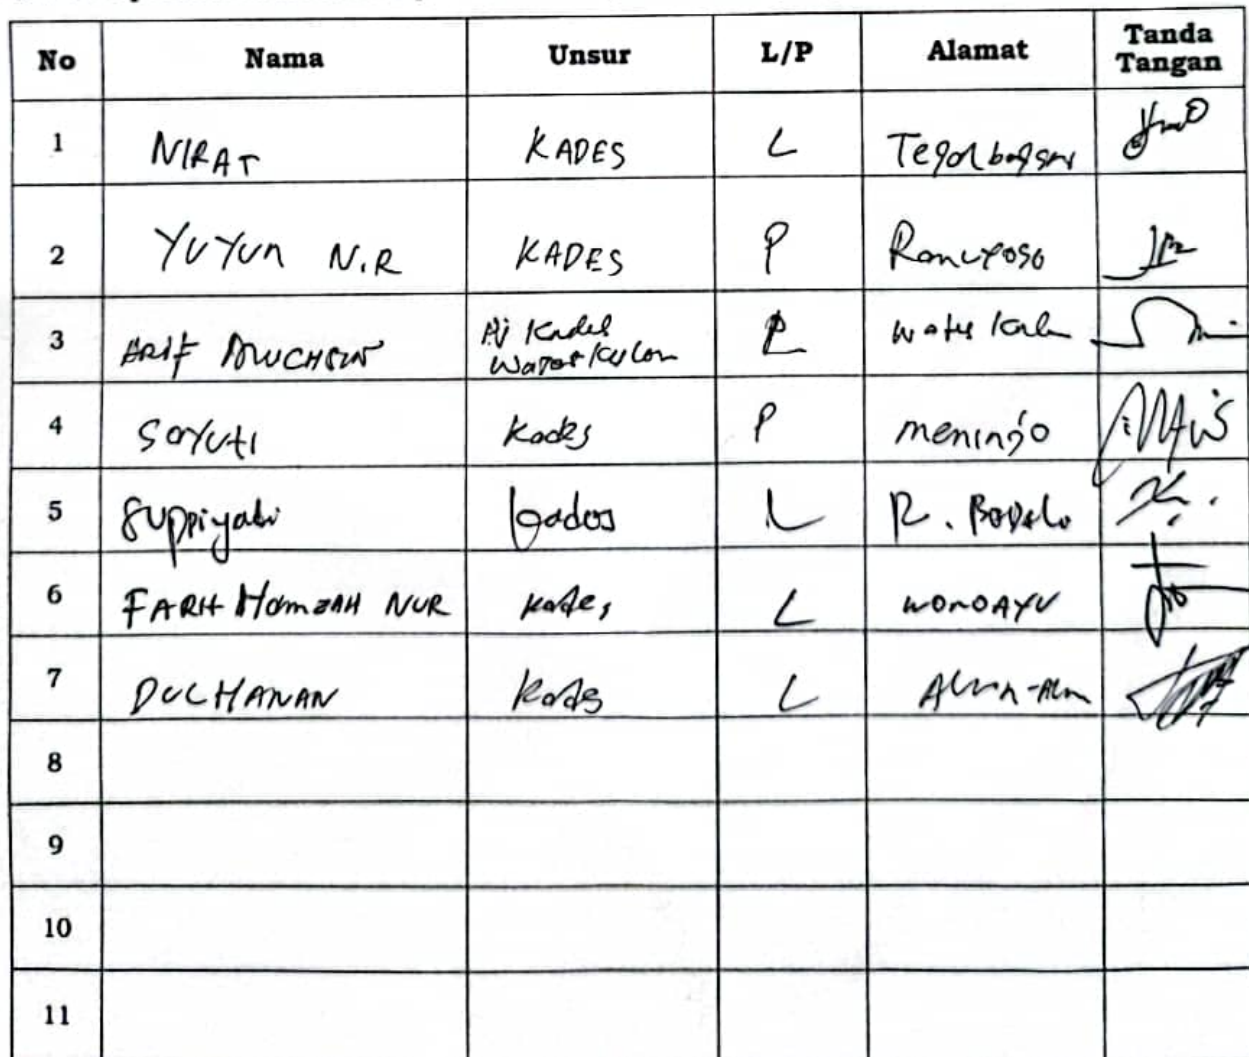 No Nama Unsur L/P Alamat Tanda Tangan
1 NIRAT KADES L Tegalbangsri
2 YUYUN N.R KADES P Ranuyoso
3 ARIF MUCHSIN Pj Kades Wates Kulon L Wates Kulon
4 Sayuti Kades P meninjo
5 Suppiyadi Kades L R. Bedalo
6 FARIH HamzAH NUR Kades L WONOAYU
7 DULHANAN Kades L
8
9
10
11